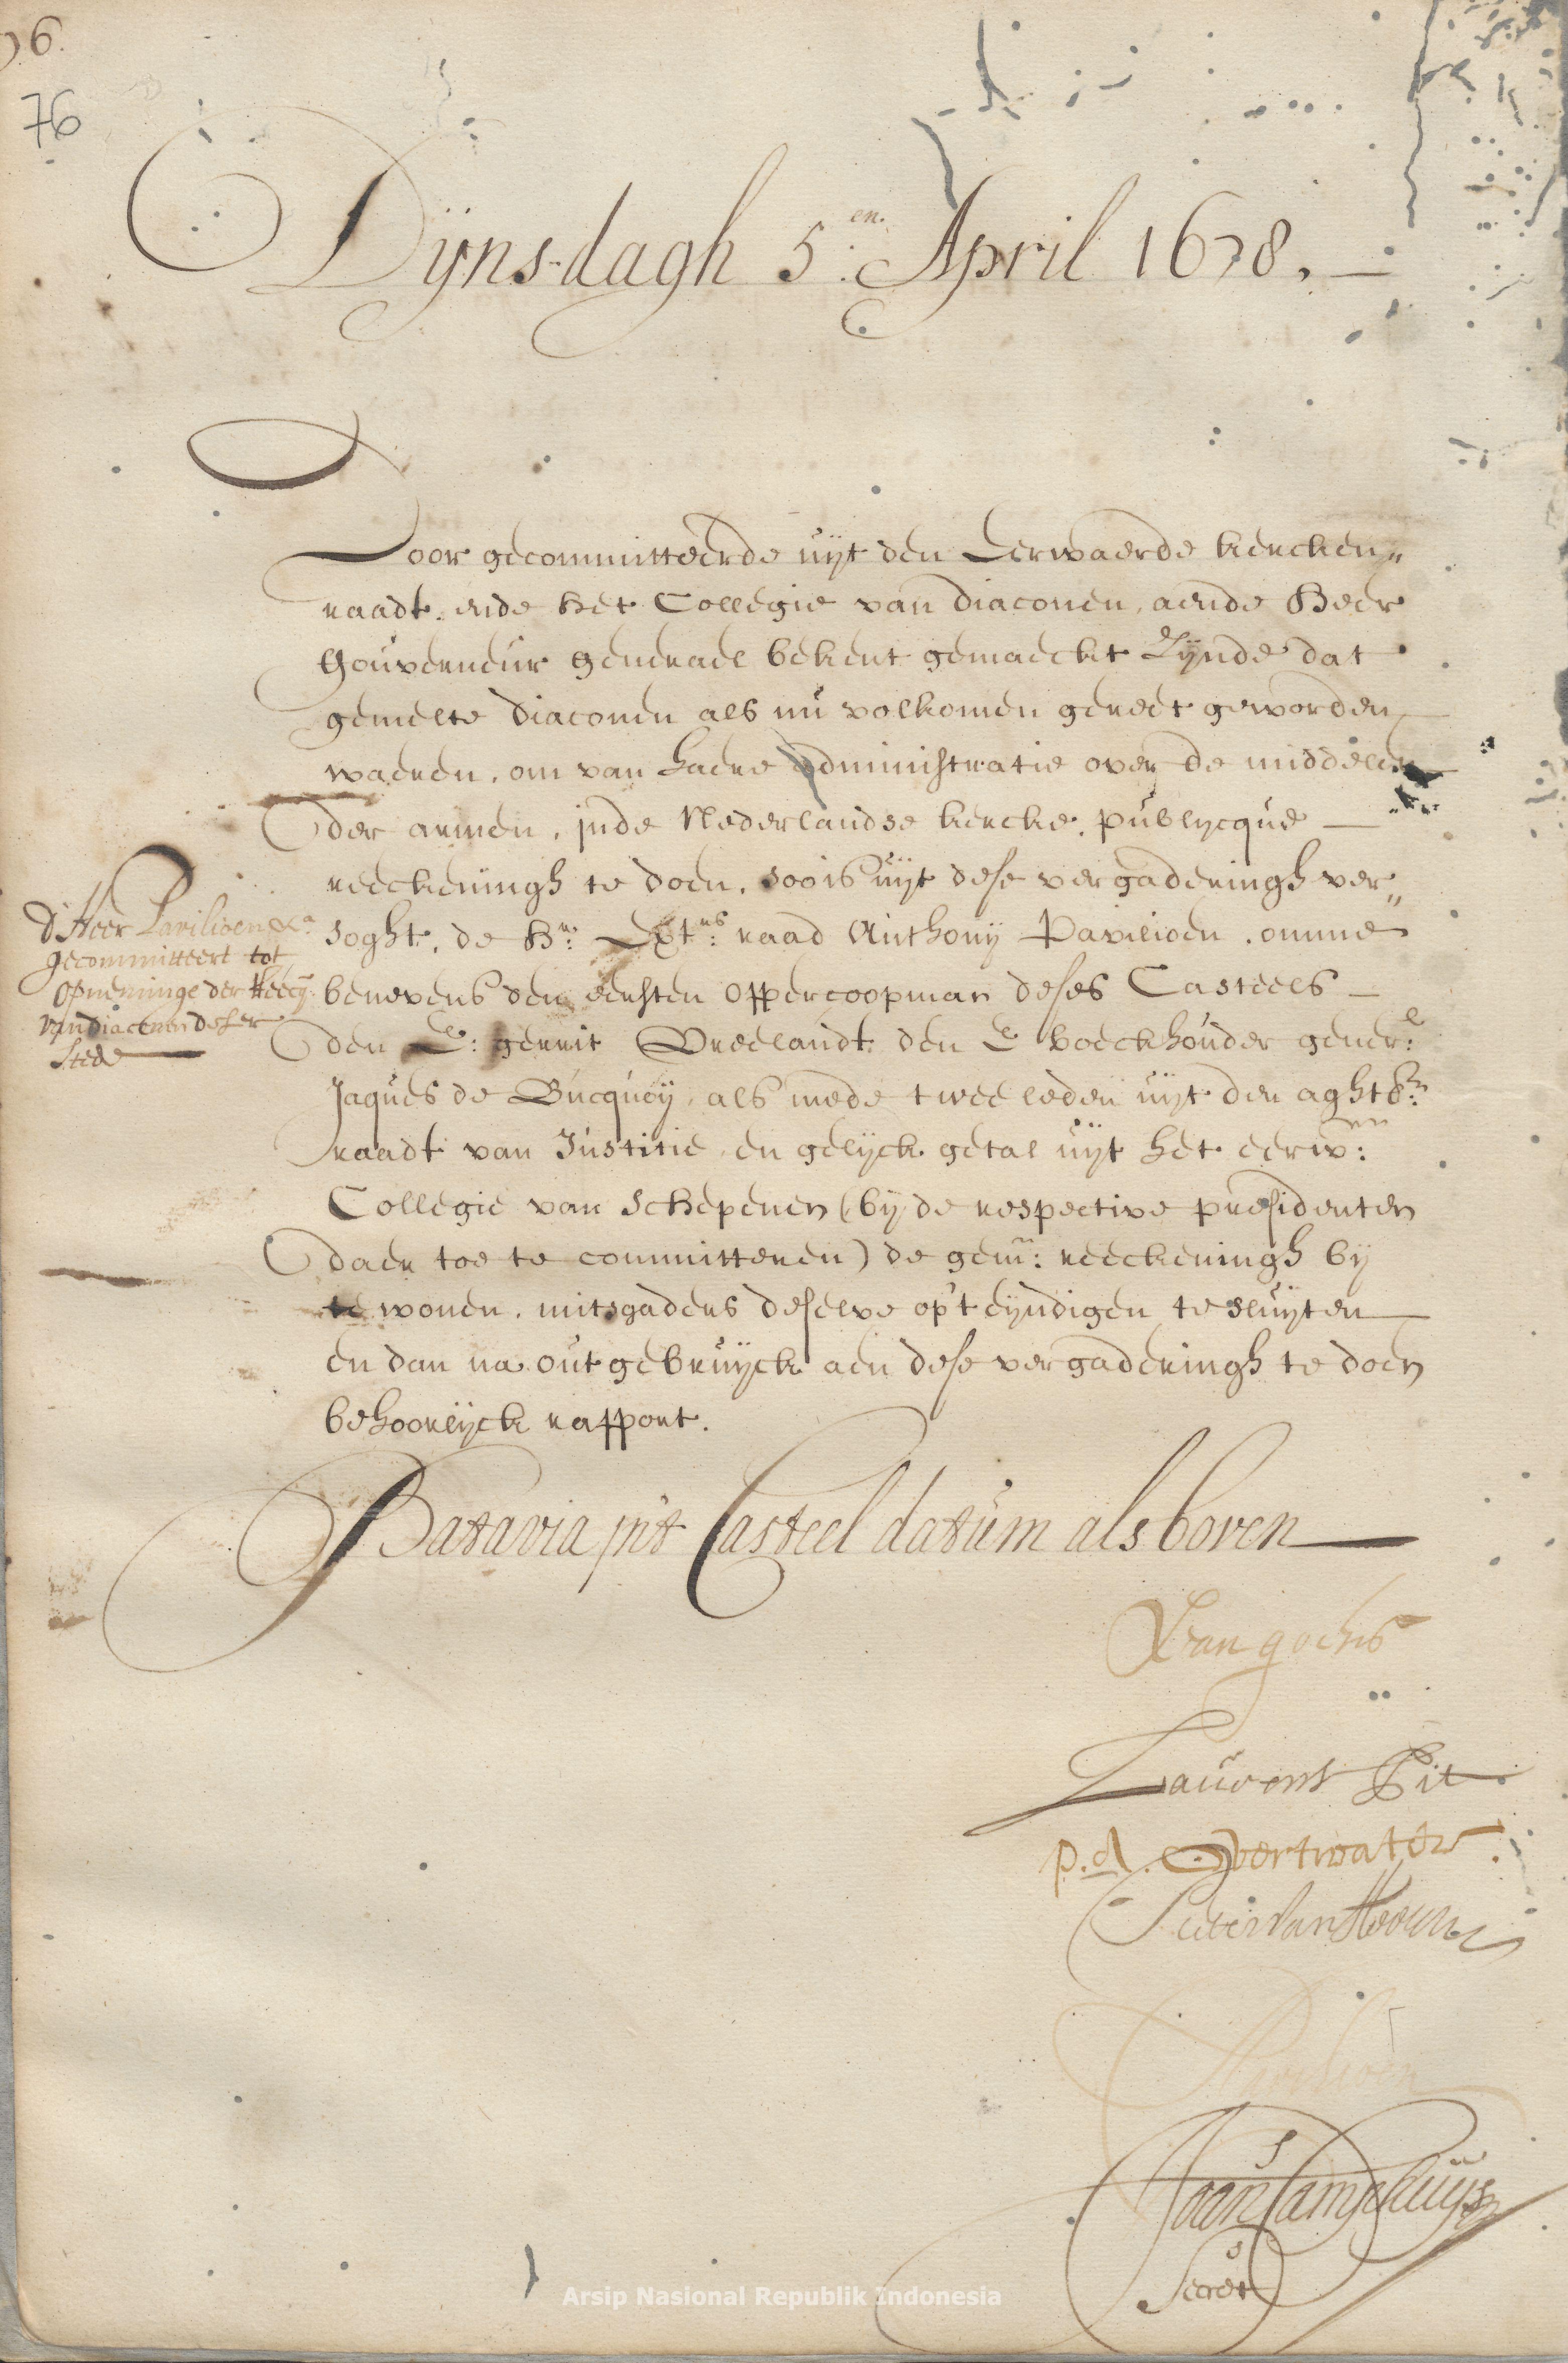 76.
76
Dijnsdagh 5.en April 1678.
Door gecommitteerde uijt den Eerwaerde kercken„
raadt, ende het Collegie van diaconen, aende Heer
Gouverneur generael bekent gemaeckt zijnde dat
gemelte diaconen als nu volkomen gereet geworden
waeren, om van haere administratie over de middelen
der armen, inde Nederlandse kercke, publycque
reeckeningh te doen, soo is uijt dese vergaderingh ver„
soght, de Hr. Extrs. raad Anthonij Pavilioen, omme
benevens den eersten oppercoopman deses Casteels
den E: gerrit Vreelandt den E boeckhouder gener:l
Jaques de Bucquoij, als mede twee leden uijt den aghtb:n
raadt van Justitie, en gelijck getal uijt het eerw:en
Collegie van schepenen (bij de respective presidenten
daer toe te committeren) de gem: reeckeningh bij
te wonen, mitsgaders deselve op't eyndigen te sluijten
en dan na out gebruijck aen dese vergaderingh te doen
behoorlijck rapport.
d'Heer Pavilioen &a
gecommitteert tot
opneminge der Reecq
van diaconen deser
stede
Batavia in't Casteel datum als boven
R van goens
Laurens Pit
P. A. Overtwater
Pieter van Hoorn
A Pavilioen
Joan Camphuys
Secret
Arsip Nasional Republik Indonesia